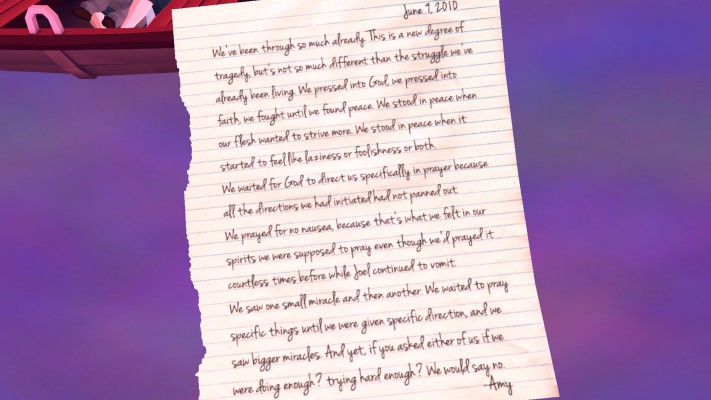 June 9, 2010
We've been through so much already. This is a new degree of
tragedy, but's not so much different than the struggle we've
already been living. We pressed into God, we pressed into
faith, we fought until we found peace. We stood in peace when
our flesh wanted to strive more. We stood in peace when it
started to feel like laziness or foolishness or both.
We waited for God to direct us specifically in prayer because
all the directions we had initiated had not panned out.
We prayed for no nausea, because that's what we felt in our
spirits we were supposed to pray even though we'd prayed it
countless times before while Joel continued to vomit.
We saw one small miracle and then another. We waited to pray
specific things until we were given specific direction, and we
saw bigger miracles. And yet, if you asked either of us if we
were doing enough? trying hard enough? We would say no.
-Amy